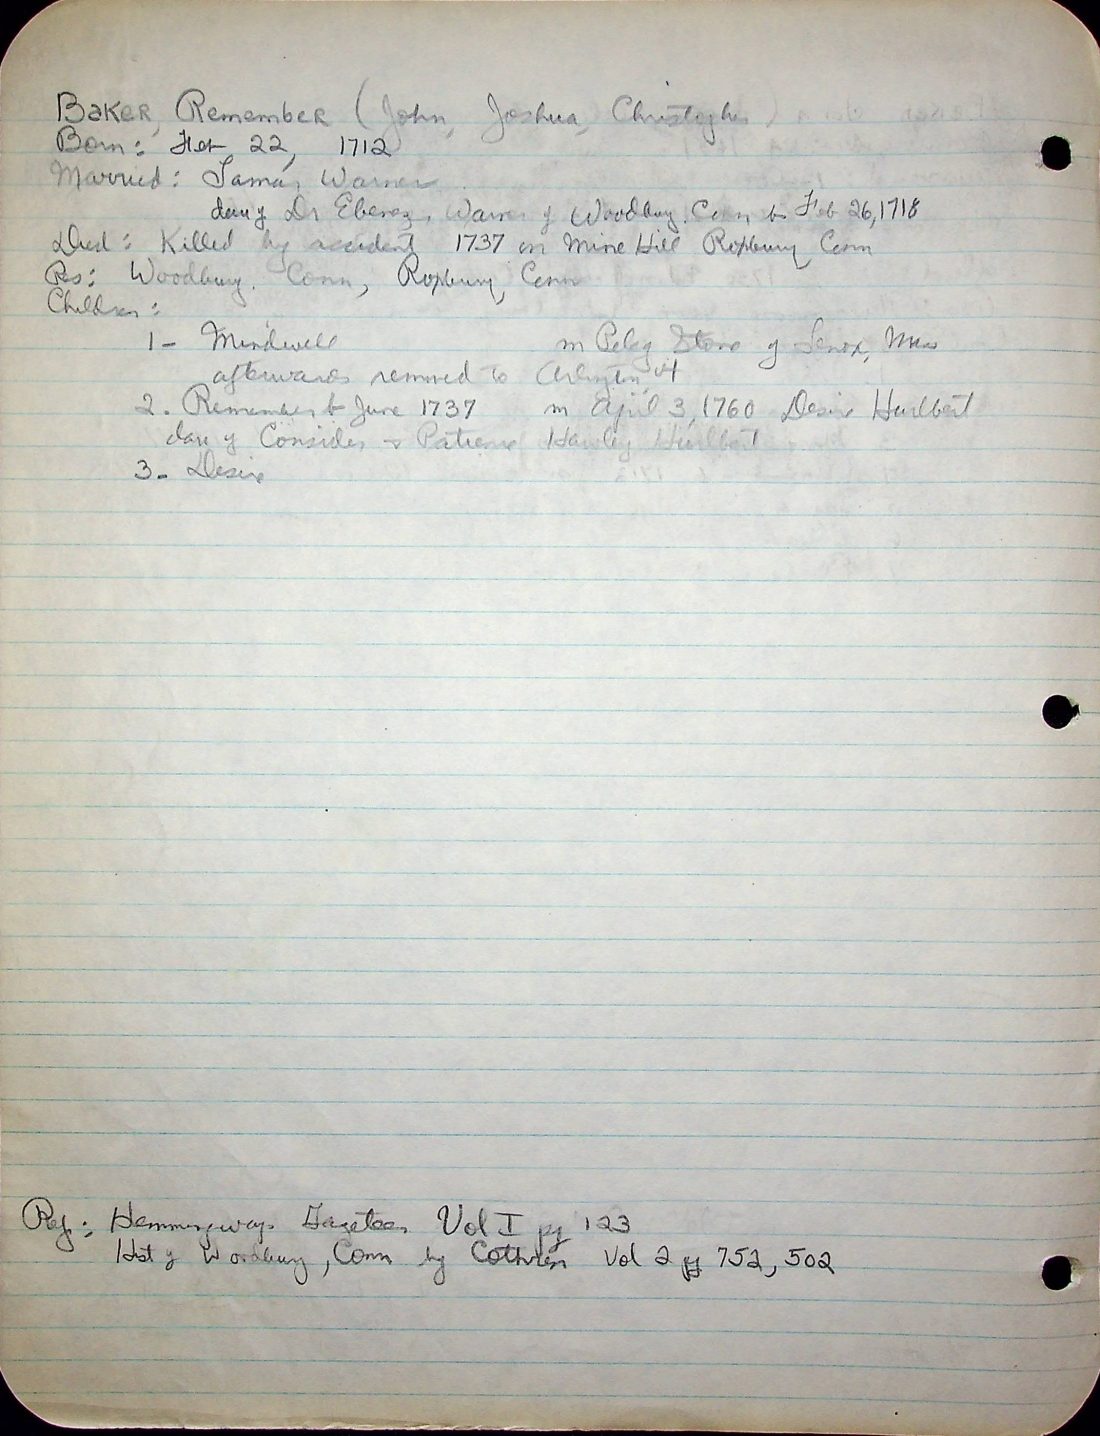 Baker, Remember (John, Joshua, Christopher)
Born: Feb 22, 1712
Married: Tamar Warner
dau of Dr Ebenez. Warner of Woodbury, Conn b Feb 26, 1718
Died: Killed by accident 1737 on Mine Hill Roxbury Conn
Res: Woodbury, Conn, Roxbury, Conn
Children:
1- Mindwell m Peleg Stone of Lenox, Mass
afterwards removed to Arlington, Vt
2. Remember b June 1737 m April 3, 1760 Desire Hurlbert
dau of Consider & Patience Hawley Hurlbert
3- Desire
Ref: Hemmingways Gazeteer Vol I pg 123
Hist of Woodbury, Conn by Cothren Vol 2 pg 752, 502